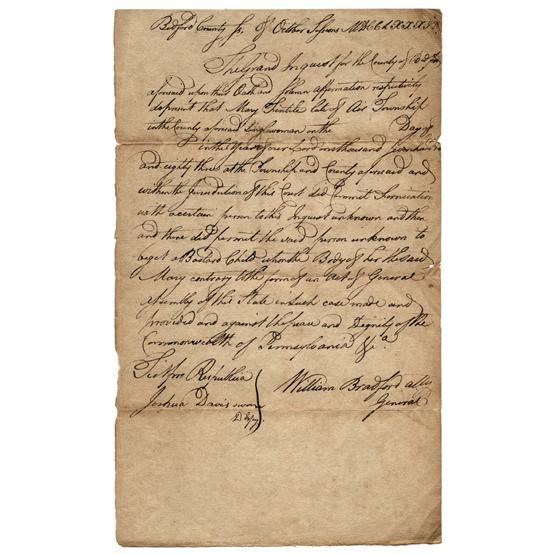 Bedford County, ss. Of October Sessions MDCCLXXXIII
The Grand Inquest for the County of Bedford
aforesaid upon their Oath and Solemn affirmation respectively
do present that Mary Gentile late of Air Township
in the County aforesaid Singlewoman on the Day of
in the Year of our Lord one thousand seven hundred
and eighty three at the Township and County aforesaid and
within the Jurisdiction of this Court did Commit Fornication
with a certain person to this Inquest unknown and then
and there did permit the said person unknown to
beget a Bastard Child upon the Body of her the said
Mary contrary to the form of an Act of General
Assembly of this State in such case made and
provided and against the peace and Dignity of the
Commonwealth of Pennsylvania &ca
Test pro Republica
Joshua Davis sworn
William Bradford
General